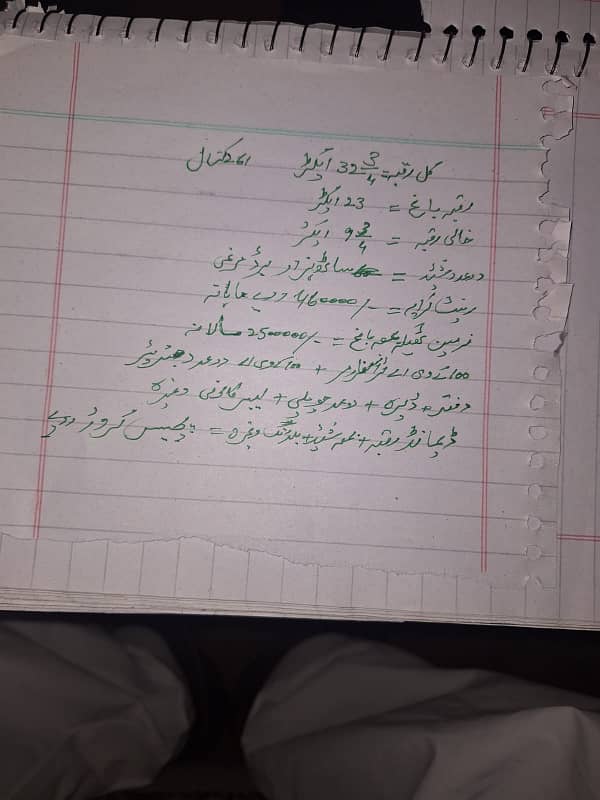 کل رقبہ = 32 3/4 ایکڑ کنال
رقبہ باغ = 23 ایکڑ
خالی رقبہ = 9 3/4 ایکڑ
دو عدد شیڈ = ہزار برڈ مرغی
رینٹ / کرایہ = 460000/- روپے ماہانہ
زمین ٹھیکہ بمعہ باغ = 2500000/- سالانہ
100 کے وی اے ٹرانسفارمر + 100 کے وی اے دو عدد جنریٹر
دفتر + ڈیرہ + دو عدد حویلی + لیبر کالونی وغیرہ
ڈیمانڈ رقبہ + بمعہ شیڈ + بلڈنگ وغیرہ = کروڑ روپے